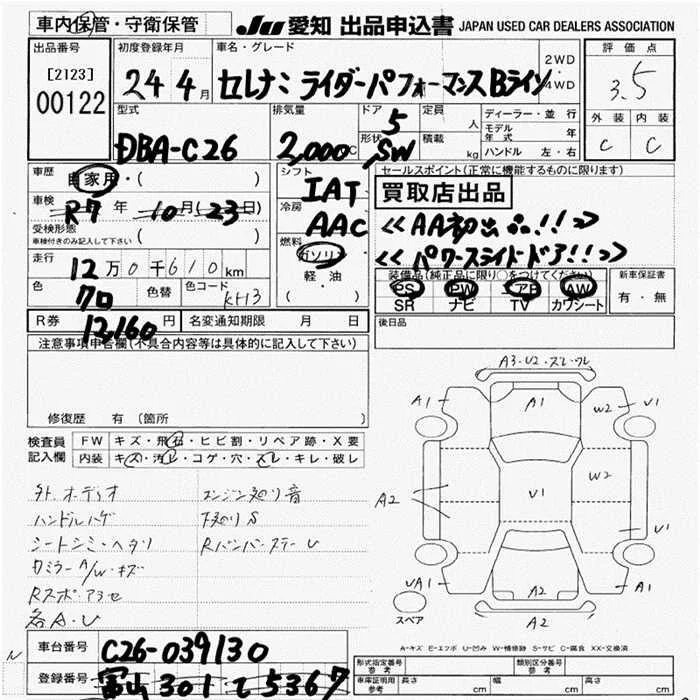 車内保管・守衛保管
JU 愛知 出品申込書 JAPAN USED CAR DEALERS ASSOCIATION
出品番号 初度登録年月 車名・グレード 評価点
[2123] 24 4月 セレナ: ライダーパフォーマンスBライン 2WD・4WD 3.5
00122
外装 内装
C C
型式 排気量 ドア 定員 ディーラー・並行
DBA-C26 2,000C 5 人 モデル年式 年
形状 積載 ハンドル 左・右
SW kg
車歴 自家用・( ) シフト セールスポイント(正常に機能するものに限ります)
IAT 買取店出品
車検 R7年 10月(23日) 冷房
AAC <<AA初出品!!>>
受検形態
車検付きのみ記入して下さい ( )
燃料 ガソリン <<パワースライドドア!!>>
走行 12万0千610km 軽・油
( )
装備品(純正品に限り○をつけてください) 新車保証書
PS PW エアB AW 有・無
SR ナビ TV カワシート
色 色替 色コード
クロ KH3
R券 12,160円 名変通知期限 月 日 後日品
注意事項申告欄(不具合内容等は具体的に記入して下さい)
修復歴 有 (箇所 )
検査員記入欄 FW キズ・飛石・ヒビ割・リペア跡・X要
内装 キズ・汚レ・コゲ・穴・スレ・キレ・破レ
外.オーディオ エンジン廻り音
ハンドルハゲ 下廻りS
シートシミ・ヘタリ RバンパーステーU
ミラーA/W・キズ
Rスポ・アラセ
各A・U
A3・U2・スレ・ワレ
A1 A1 W2 V1
A2 V1 W2
V1
UA1 A2 A1
A2
スペア
A-キズ E-エクボ U-凹み W-補修跡 S-サビ C-腐食 XX-交換済
車台番号 C26-039130
登録番号 富山 301 て 5367
N
形式指定番号 参考 類別区分番号 参考
車庫証明用 参考 長さ cm 幅 cm 高さ cm